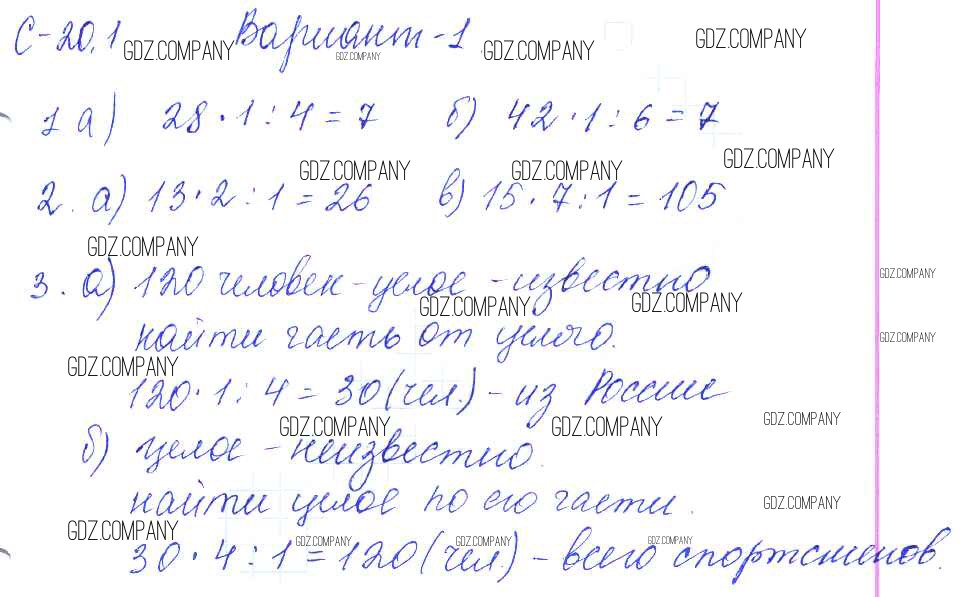 С-20.1 Вариант-1
GDZ.COMPANY GDZ.COMPANY GDZ.COMPANY GDZ.COMPANY
1 а) 28·1:4=7 б) 42·1:6=7
GDZ.COMPANY GDZ.COMPANY GDZ.COMPANY
2. а) 13·2:1=26 в) 15·7:1=105
GDZ.COMPANY
3. а) 120 человек-целое-известно
GDZ.COMPANY
GDZ.COMPANY GDZ.COMPANY
найти часть от целого.
GDZ.COMPANY
GDZ.COMPANY
120·1:4=30(чел.)-из России
GDZ.COMPANY GDZ.COMPANY GDZ.COMPANY
б) целое-неизвестно.
найти целое по его части.
GDZ.COMPANY
GDZ.COMPANY GDZ.COMPANY GDZ.COMPANY GDZ.COMPANY
30·4:1=120(чел.)-всего спортсменов.